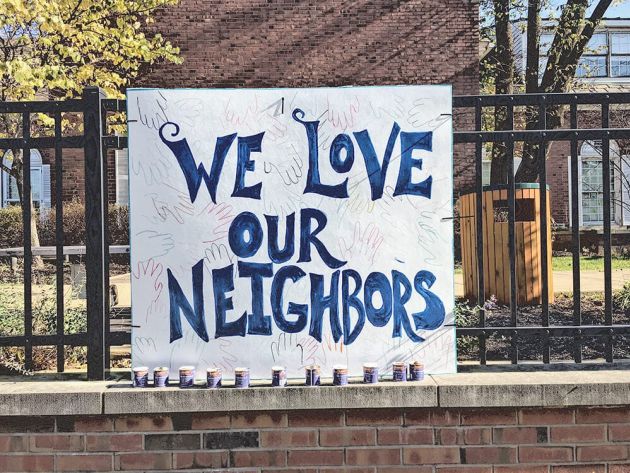 WE LOVE
OUR
NEIGHBORS